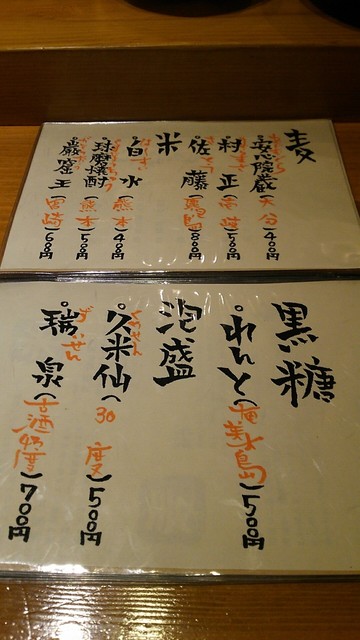 麦
安心院蔵(大分)400円
村正(宮崎)500円
佐藤
800円
米
白水(熊本)400円
球磨焼酎(熊本)500円
巌窟王(宮崎)600円
黒糖
れんと(奄美大島)500円
泡盛
久米仙(30度)500円
くめせん
瑞泉(古酒43度)700円
ずいせん